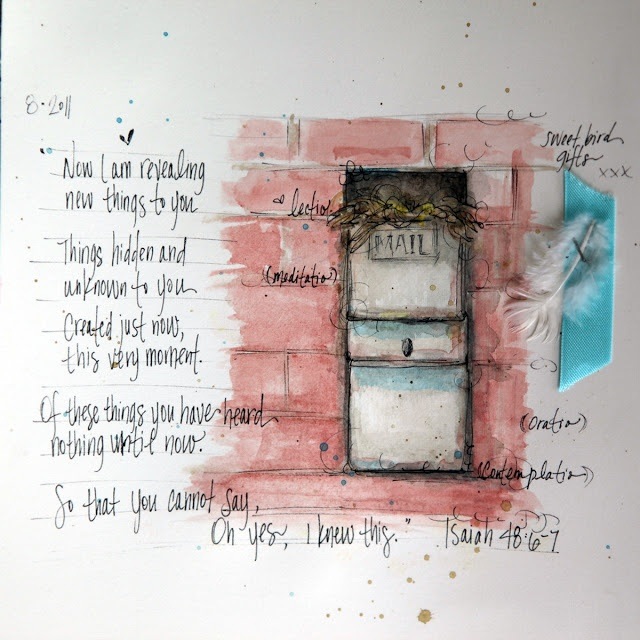 8.2011
"Now I am revealing
new things to you
Things hidden and
unknown to you
Created just now,
this very moment.
Of these things you have heard
nothing until now.
So that you cannot say,
Oh yes, I knew this."
Isaiah 48:6-7
lectio
(meditatio)
MAIL
sweet bird
gifts
xxx
(Oratio)
(Contemplatio)